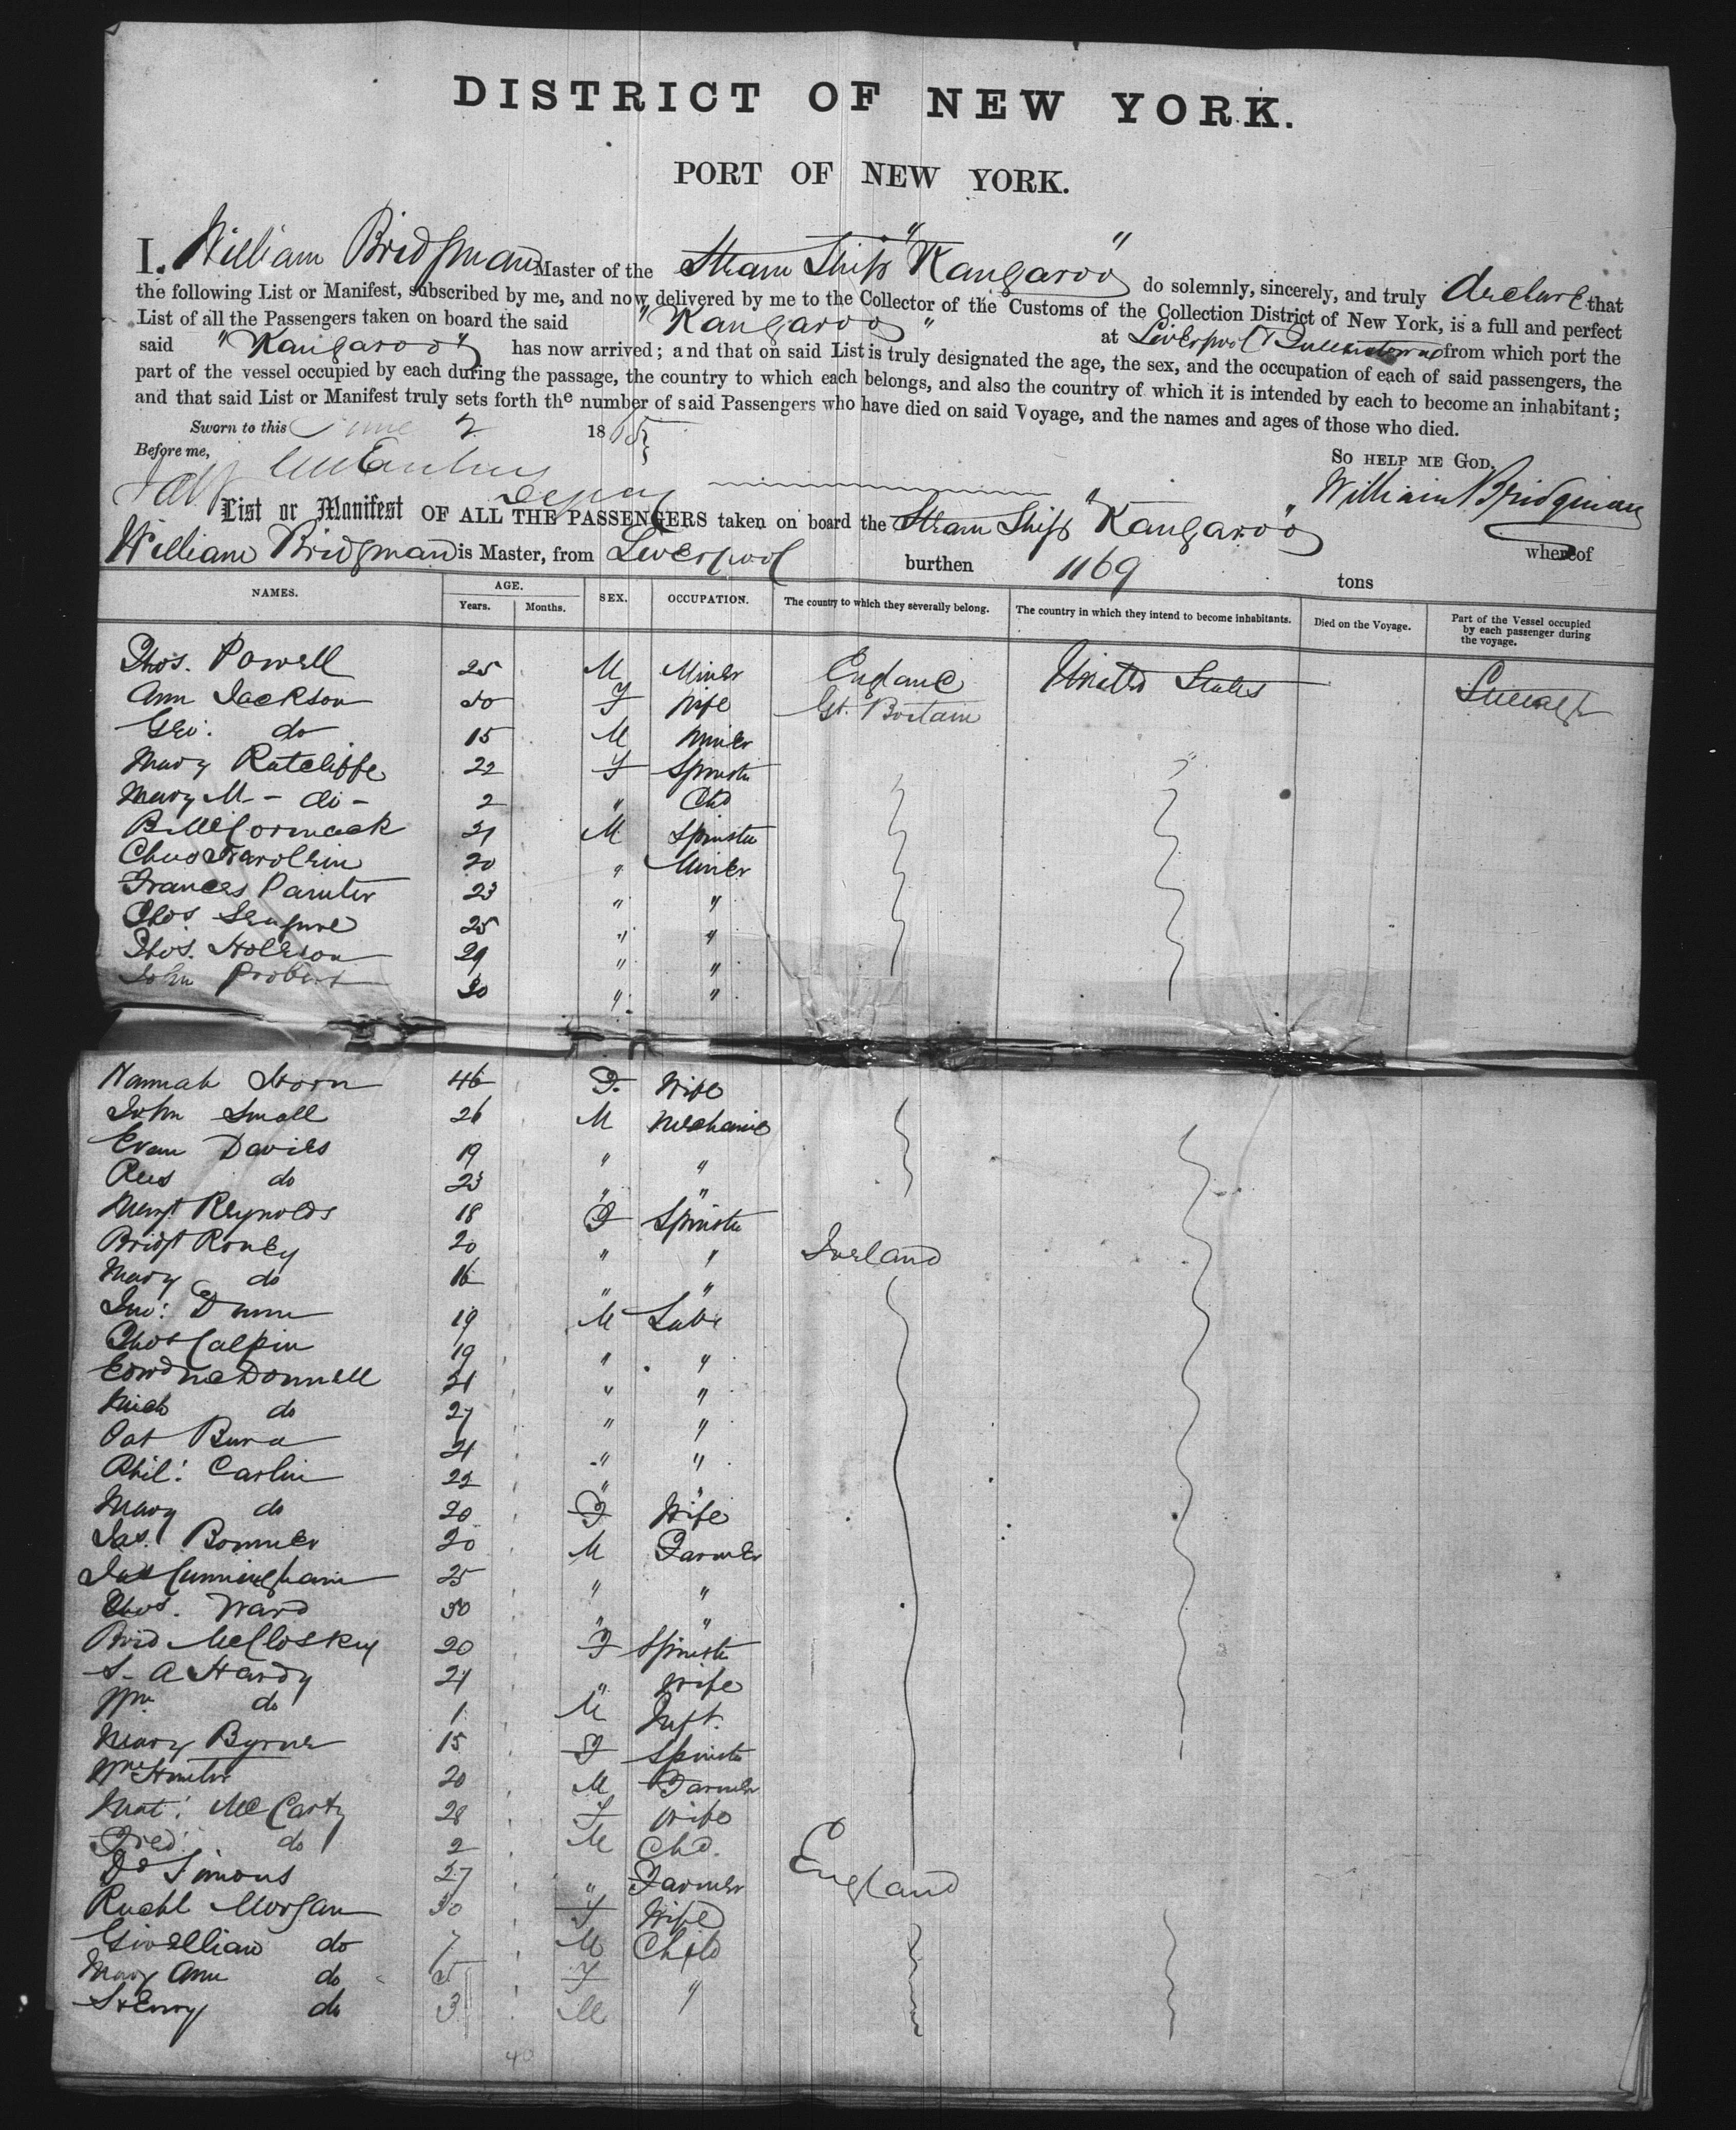 DISTRICT OF NEW YORK.
PORT OF NEW YORK.
I. William Bridgman Master of the Steam Ship "Kangaroo" do solemnly, sincerely, and truly declare that
the following List or Manifest, subscribed by me, and now delivered by me to the Collector of the Customs of the Collection District of New York, is a full and perfect
List of all the Passengers taken on board the said "Kangaroo" at Liverpool & Queenstown from which port the
said "Kangaroo" has now arrived; and that on said List is truly designated the age, the sex, and the occupation of each of said passengers, the
part of the vessel occupied by each during the passage, the country to which each belongs, and also the country of which it is intended by each to become an inhabitant;
and that said List or Manifest truly sets forth the number of said Passengers who have died on said Voyage, and the names and ages of those who died.
Sworn to this June 2 1865
So HELP ME GOD.
Before me,
William Bridgman
List or Manifest OF ALL THE PASSENGERS taken on board the Steam Ship "Kangaroo" whereof
William Bridgman is Master, from Liverpool burthen 1169 tons
NAMES. AGE. Years. Months. SEX. OCCUPATION. The country to which they severally belong. The country in which they intend to become inhabitants. Died on the Voyage. Part of the Vessel occupied by each passenger during the voyage.
Thos. Powell 25 M Miner England United States
Ann Jackson 50 F Wife Gt. Britain
Geo: do 15 M Miner
Mary Ratcliffe 22 F Spinster
Mary M - do - 2 " Chd
B McCormack 21 M Spinster
20 " Miner
Frances 23 " "
Thos 25 " "
Thos. 29 " "
John Probert 30 " "
Hannah Horn 46 F Wife
John Small 26 M Mechanic
Evan Davies 19 " "
Rees do 23 " "
Margt Reynolds 18 F Spinster
Bridgt Roney 20 " " Ireland
Mary do 16 " "
Jno: Dunn 19 M Labr
Thos Calpin 19 " "
Edwd McDonnell 21 " "
Mich do 27 " "
Pat 21 " "
Phil: Carlin 22 " "
Mary do 20 F Wife
Jas. Bonner 20 M Farmer
Jas Cunningham 25 " "
Thos. Ward 50 " "
Brid McCloskey 20 F Spinster
S. A Hardy 21 " Wife
Wm do 1 M Inft.
Mary Byrne 15 F Spinster
Wm Hunter 20 M Farmer
Mat: McCarty 28 F Wife
Fred: do 2 M Chd.
Dd Simons 27 " Farmer England
Rachl Morgan 30 F Wife
Gwellian do 7 M Child
Mary Ann do 5 F "
Henry do 3 M
40